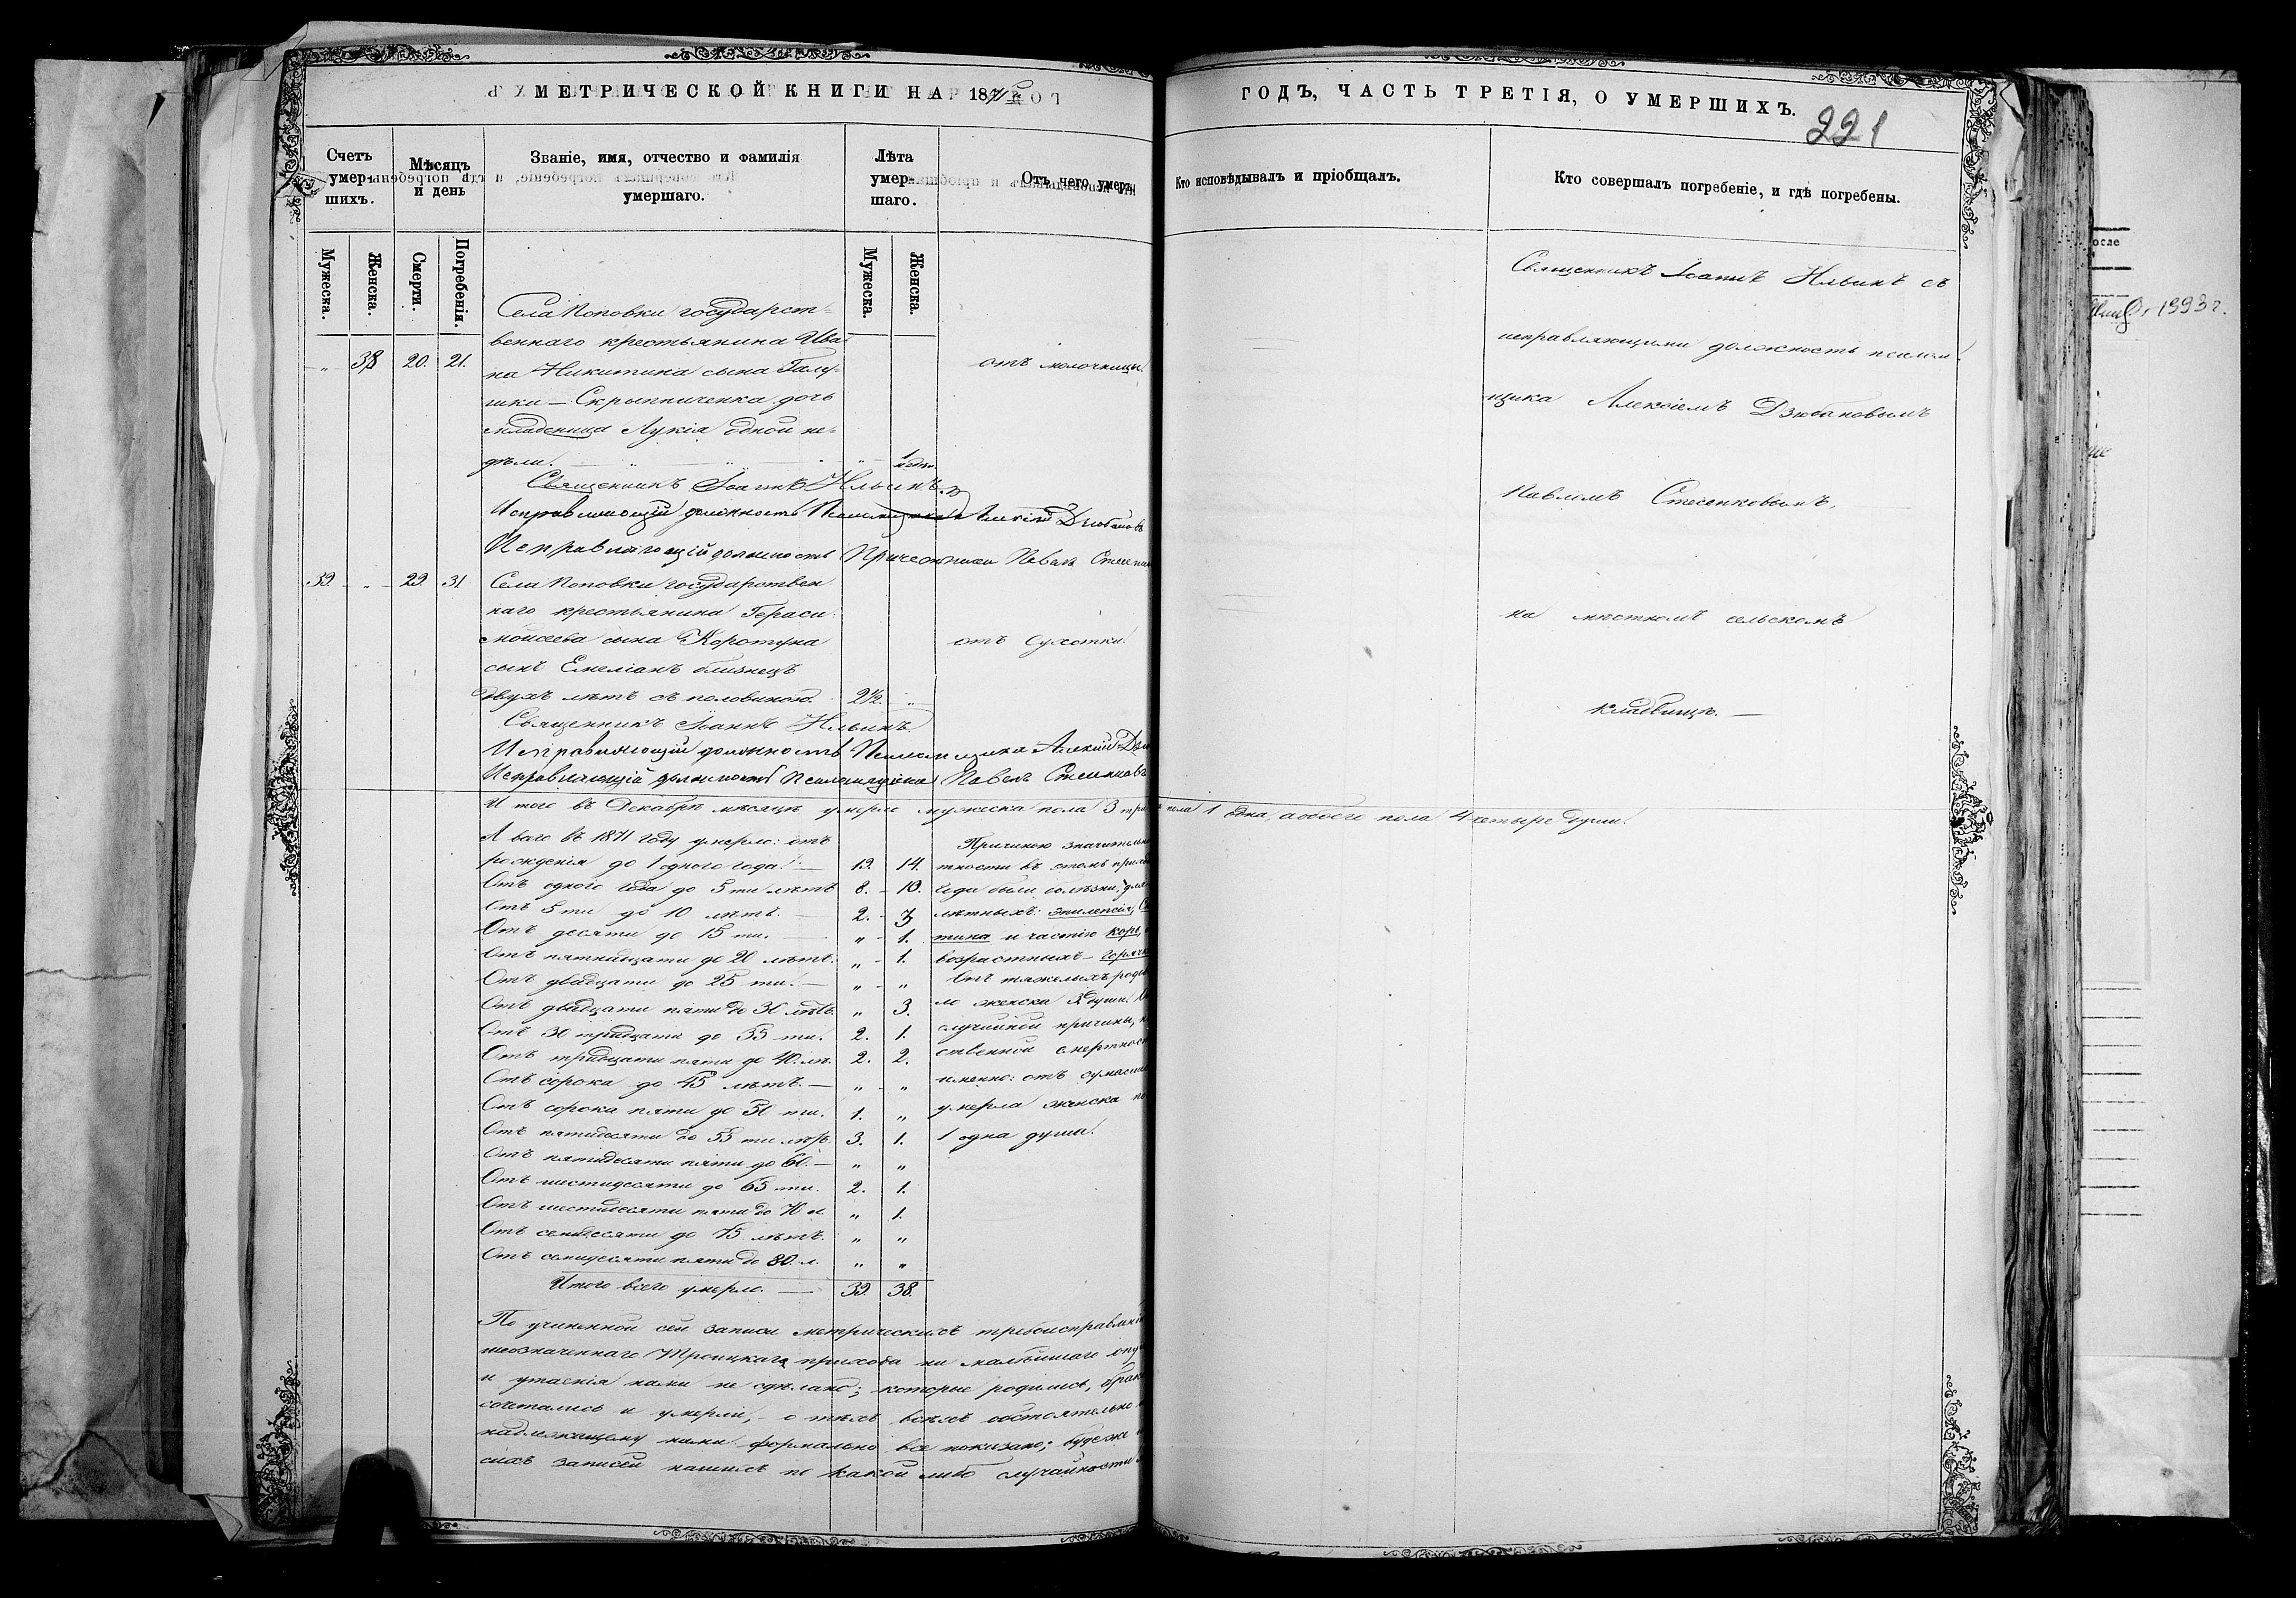 МЕТРИЧЕСКОЙ КНИГИ НА 1871
ГОДЪ, ЧАСТЬ ТРЕТІЯ, О УМЕРШИХЪ.
221
Счетъ умер-шихъ.
Мѣсяцъ и день
Званіе, имя, отчество и фамилія умершаго.
Лѣта умер-шаго.
Отъ чего умеръ
Кто исповѣдывалъ и пріобщалъ.
Кто совершалъ погребеніе, и гдѣ погребены.
Мужеска.
Женска.
Смерти.
Погребенія.
Мужеска.
Женска.
Села Поповки государст-
веннаго крестьянина Ива-
„ 38 20. 21. на Никитина сына Галу-
шки — Скрыпниченка дочь
младеница Лукія одной не-
дѣли. „ 1 недѣли
отъ молочницы.
Священникъ Іоаннъ Ильинъ.
Исправляющій должность Псаломщика Алексій Дзюбановъ
Исправляющій должность Причетника Павелъ
39. „ 29. 31 Села Поповки государствен
наго крестьянина Гераси
Моисеева сына Коротуна
сынъ Емеліанъ близнецъ
двухъ лѣтъ съ половиною. 2½. „
отъ сухотки.
Священникъ Іоаннъ Ильинъ.
Исправляющій должность Псаломщика Алексій
Исправляющій должность Псаломщика Павелъ
Священникъ Іоаннъ Ильинъ съ
исправляющими должность псалом-
щика Алексіемъ Дзюбановымъ
Павломъ Стесенковымъ,
на мѣстномъ сельскомъ
кладбищѣ. —
Итого въ Декабрѣ мѣсяцѣ умерло мужеска пола 3 пола 1 одна, а обоего пола 4 четыре души.
А всего въ 1871 году умерло: отъ
рожденія до 1 одного года. — 19. 14.
Отъ одного года до 5 ти лѣтъ 8. 10.
Отъ 5 ти до 10 лѣтъ. — 2. 3
Отъ десяти до 15 ти. „ 1.
Отъ пятнадцати до 20 лѣтъ. „ 1.
Отъ двадцати до 25 ти. — „ „
Отъ двадцати пяти до 30 лѣтъ. „ 3.
Отъ 30 тридцати до 35 ти. 2. 1.
Отъ тридцати пяти до 40. лѣ. 2. 2.
Отъ сорока до 45 лѣтъ. — „ „
Отъ сорока пяти до 50 ти. 1. „
Отъ пятидесяти до 55 ти лѣтъ. 3. 1.
Отъ пятидесяти пяти до 60. — „ „
Отъ шестидесяти до 65 ти. 2. 1.
Отъ шестидесяти пяти до 70 л. „ 1.
Отъ семидесяти до 75 лѣтъ. „ „
Отъ семидесяти пяти до 80. л. „ „
Итого всего умерло. — 39. 38.
Причиною
въ этомъ
года были болѣзни, для
лѣтныхъ: эпилепсія,
тина и частію корь,
возрастныхъ —
Отъ тяжелыхъ
ло женска 3 души.
случайной причины,
ственной
именно: отъ
умерла женска
1 одна душа.
По учиненной сей записи метрическихъ
шеозначеннаго Троицкаго прихода ни малѣйшаго
и утаенія нами не сдѣлано; которые родились,
сочетались и умерли, — о тѣхъ всѣхъ обстоятельно
надлежащему нами формально все показано;
сихъ записей нашихъ по какой либо случайности